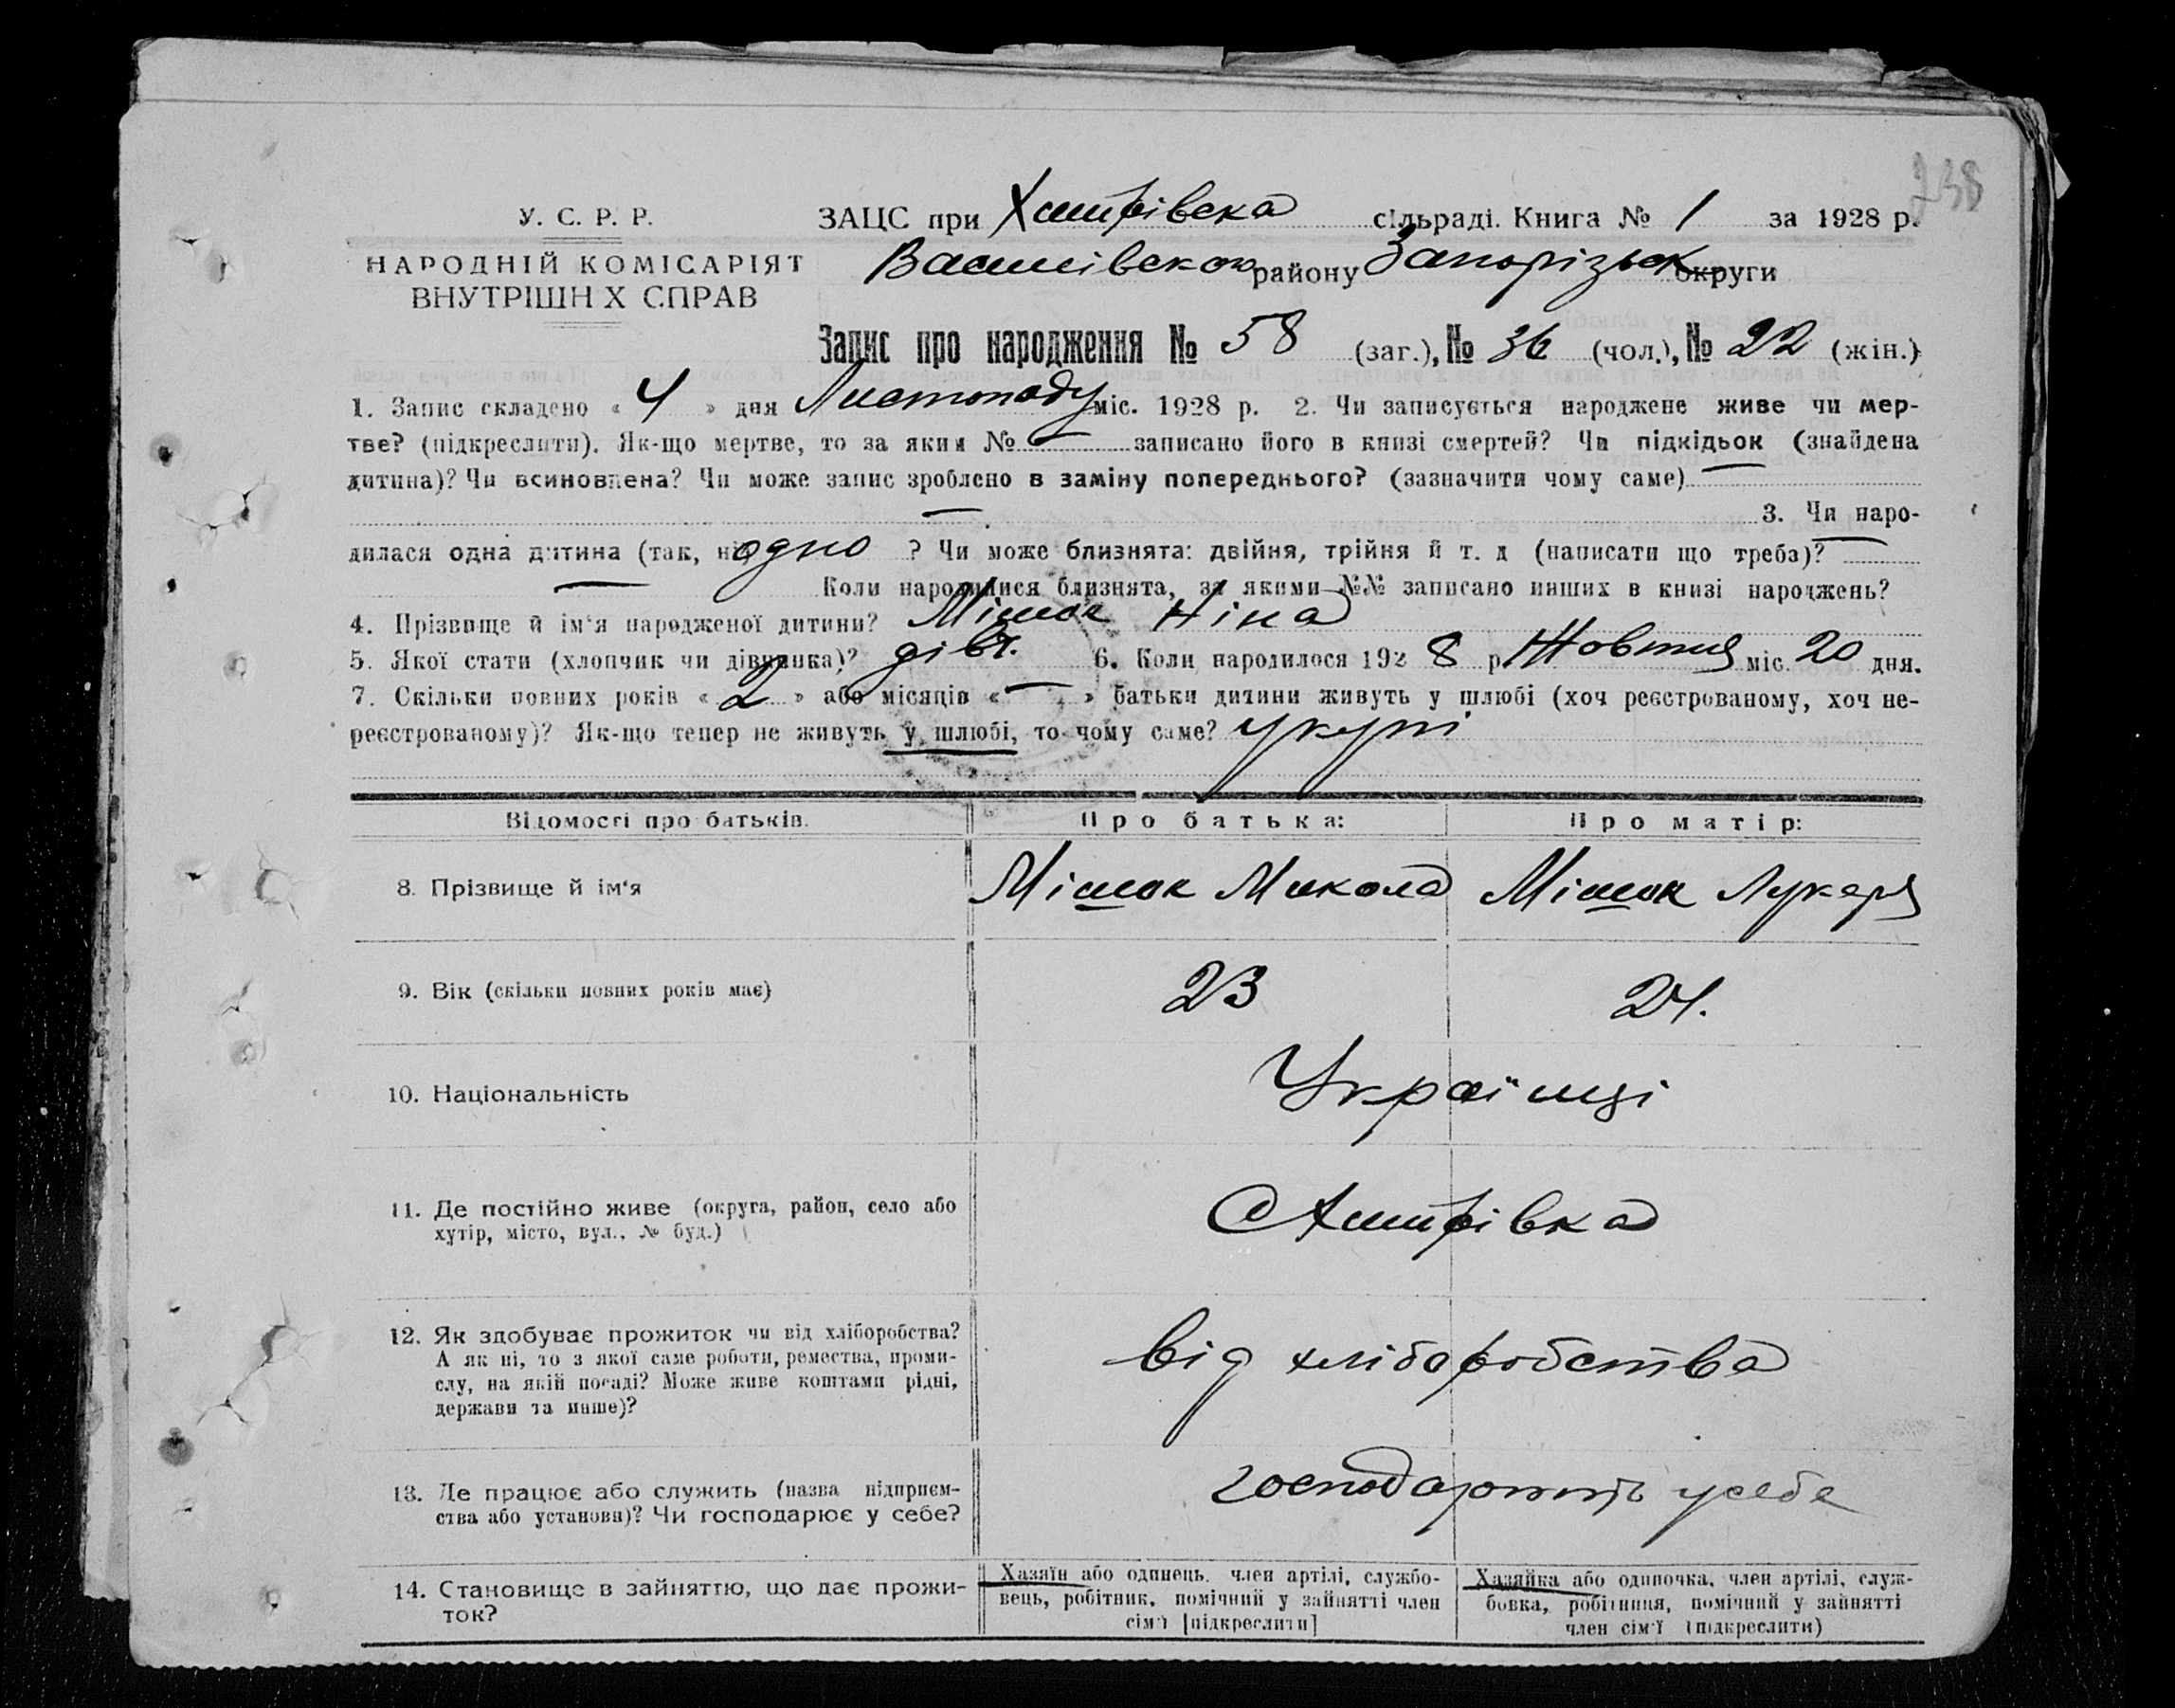 238
У. С. Р. Р.
НАРОДНІЙ КОМІСАРІЯТ
ВНУТРІШН Х СПРАВ
ЗАЦС при сільраді. Книга № 1 за 1928 р.
Василівською району Запорізьк округи
Запис про народження № 58 (заг.), № 36 (чол.), № 22 (жін.)
1. Запис складено « 4 » дня Листопаду міс. 1928 р. 2. Чи записується народжене живе чи мер-
тве? (підкреслити). Як-що мертве, то за яким № — записано його в книзі смертей? Чи підкідьок (знайдена
дитина)? Чи всиновлена? Чи може запис зроблено в заміну попереднього? (зазначити чому саме) —
— 3. Чи наро-
дилася одна дитина (так, ні) одно ? Чи може близнята: двійня, трійня й т. д (написати що треба)? —
— Коли народилися близнята, за якими №№ записано инших в книзі народжень?
4. Прізвище й ім'я народженої дитини? Мішок Ніна
5. Якої стати (хлопчик чи дівчинка)? дівч. 6. Коли народилося 192 8 р Жовтня міс. 20 дня.
7. Скільки повних років « 2 » або місяців « — » батьки дитини живуть у шлюбі (хоч реєстрованому, хоч не-
реєстрованому)? Як-що тепер не живуть у шлюбі, то чому саме? укупі
Відомості про батьків.
Про батька:
Про матір:
8. Прізвище й ім'я
Мішок Микола
Мішок Лукеря
9. Вік (скільки повних років має)
23
24.
10. Національність
Українці
11. Де постійно живе (округа, район, село або
хутір, місто, вул., № буд.)
12. Як здобуває прожиток чи від хліборобства?
А як ні, то з якої саме роботи, ремества, проми-
слу, на якій посаді? Може живе коштами рідні,
держави та инше)?
від хліборобства
13. Де працює або служить (назва підприєм-
ства або установи)? Чи господарює у себе?
господарюють у себе
14. Становище в зайняттю, що дає прожи-
ток?
Хазяїн або одинець, член артілі, службо-
вець, робітник, помічний у зайнятті член
сім'ї [підкреслити]
Хазяйка або одиночка, член артілі, служ-
бовка, робітниця, помічний у зайнятті
член сім'ї (підкреслити)